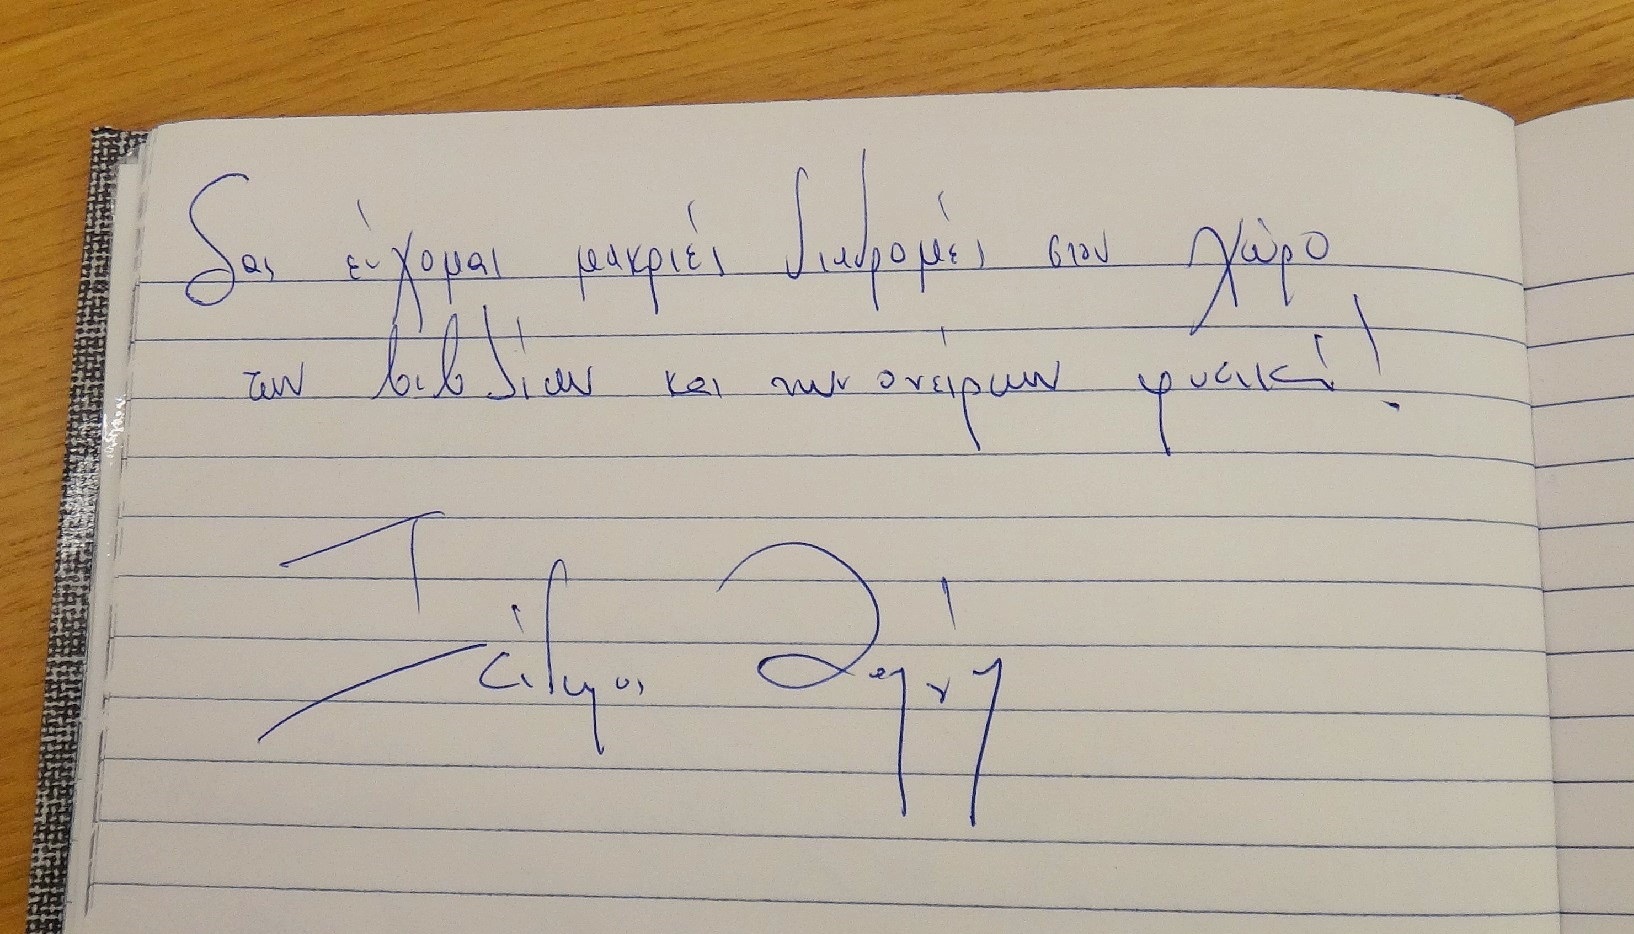 Σας εύχομαι μακριές διαδρομές στον χώρο
των βιβλίων και των ονείρων φυσικά!